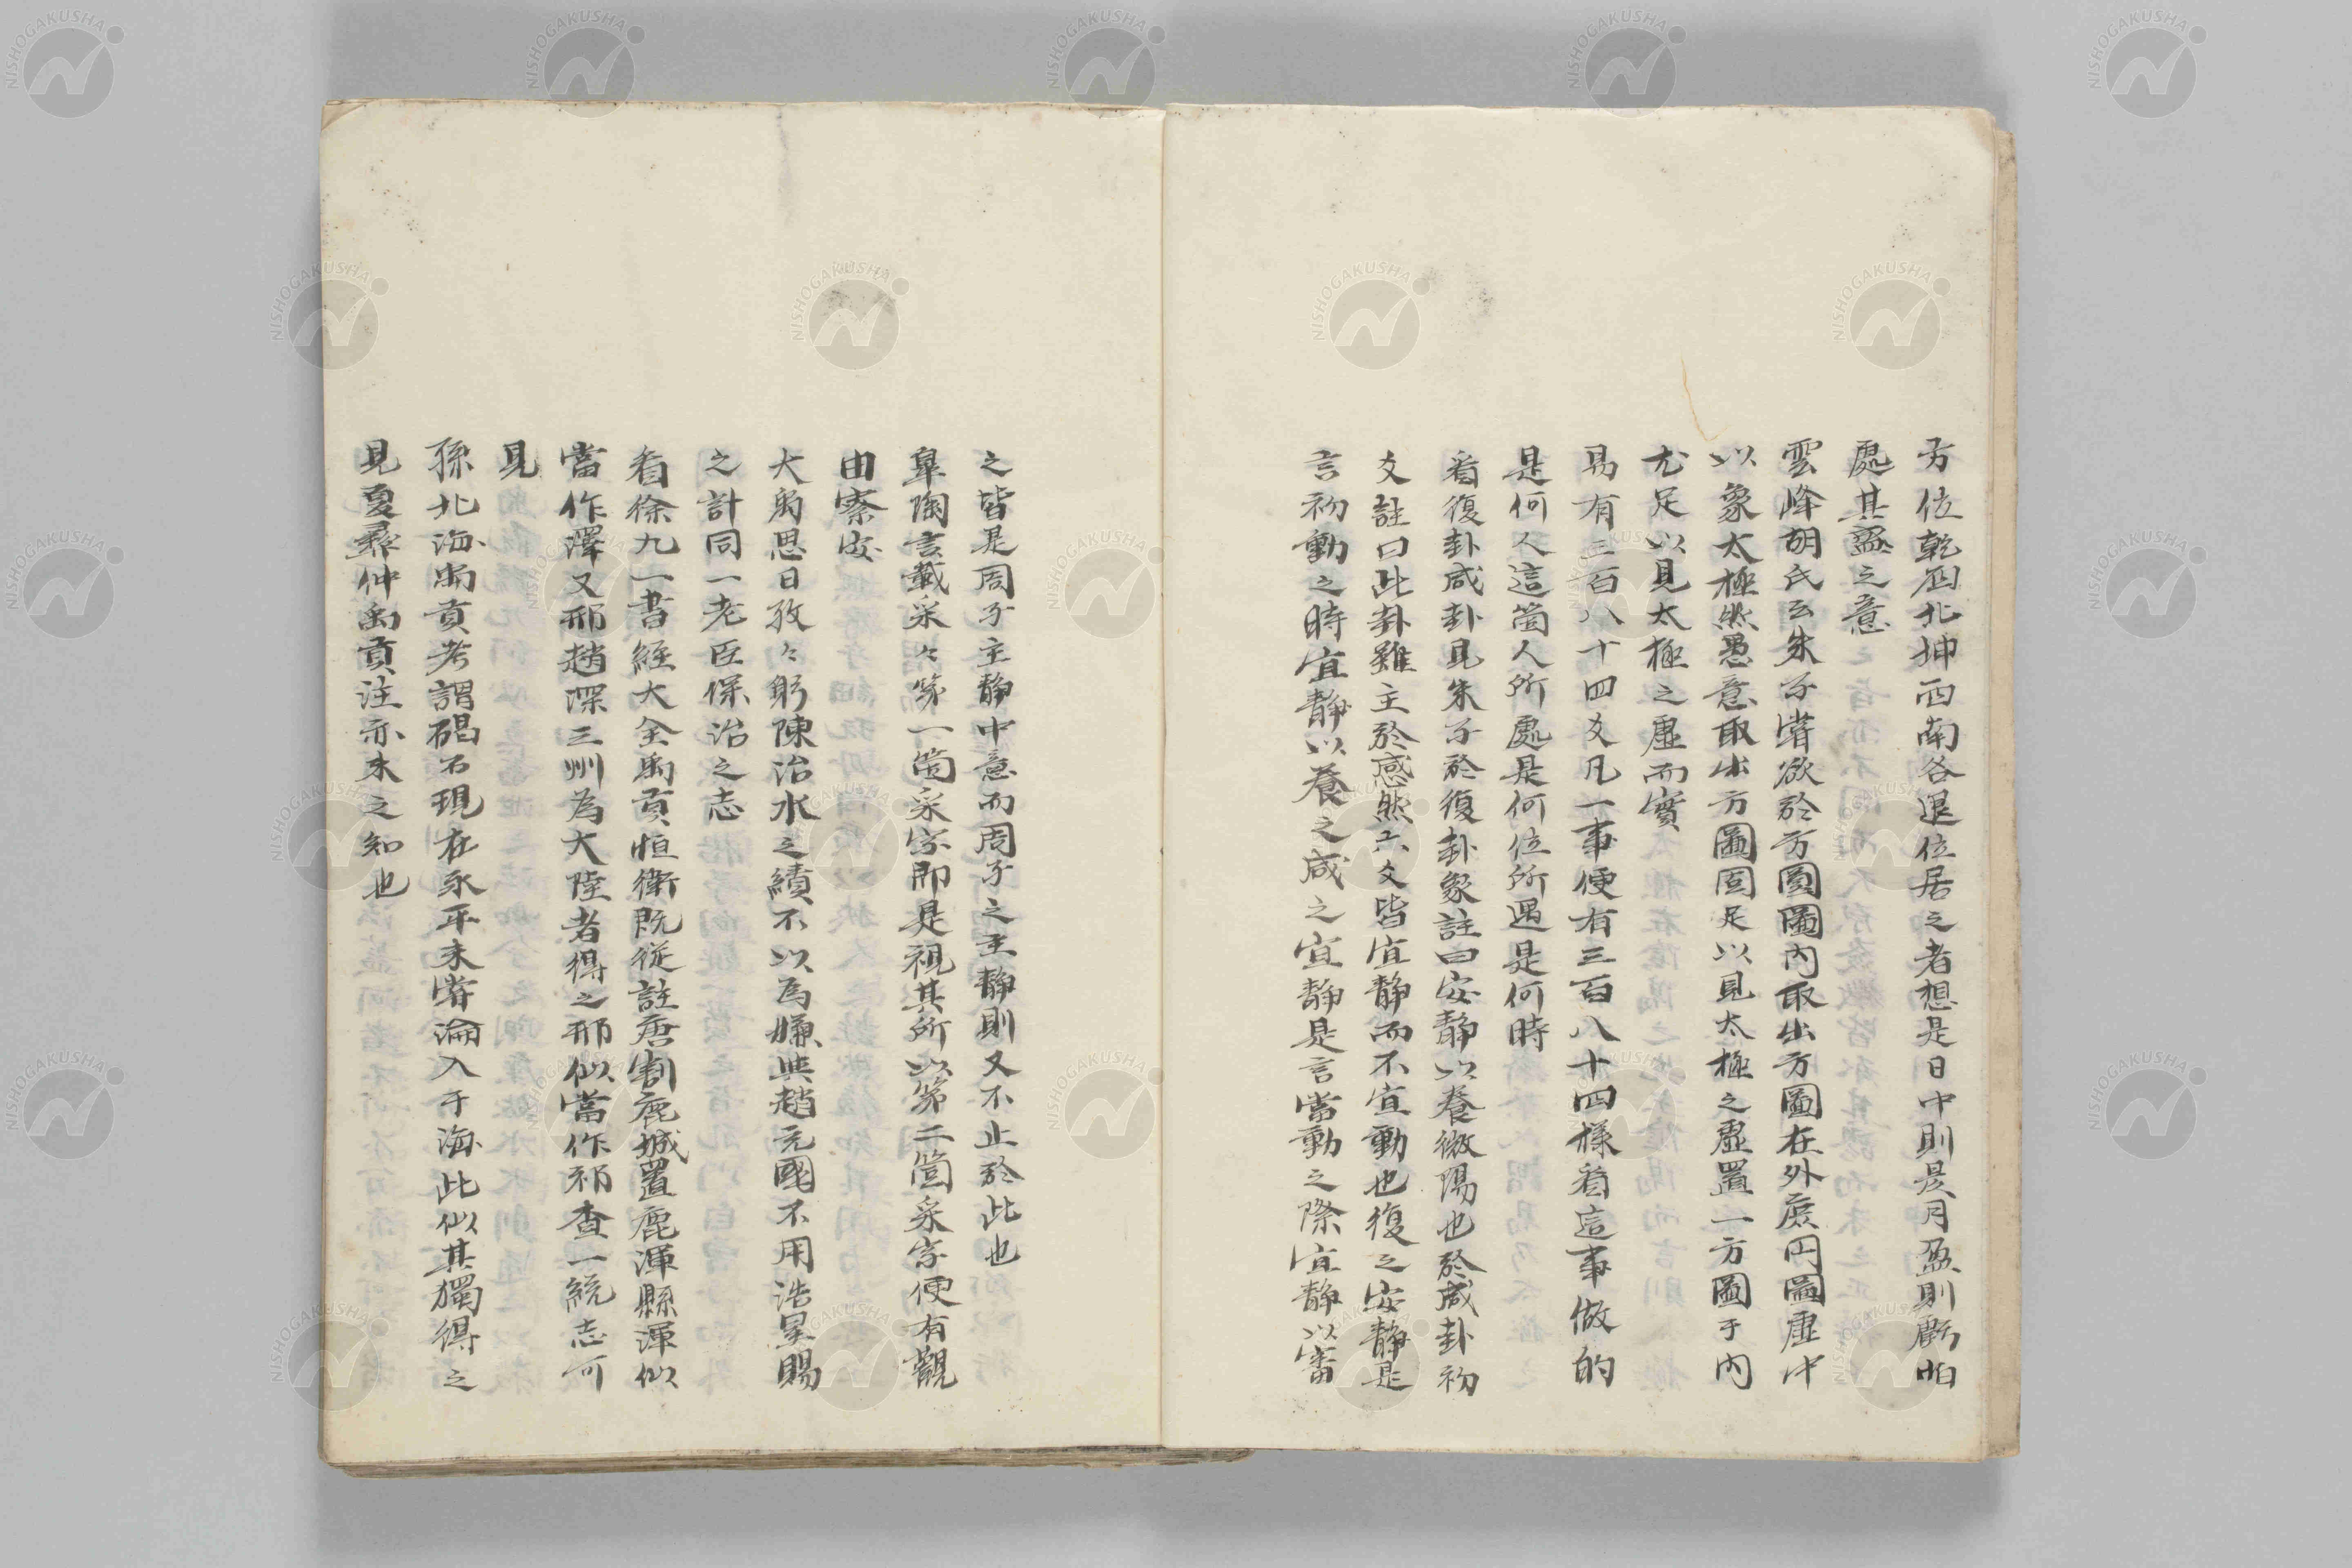 方位乾囘北坤西南各退位居之者想是日中則昃月盈則虧怕
處其盈之意
雲峰胡氏云朱子嘗欲於方圓圖內取出方圖在外庶円圖虛中
以象太極然愚意取出方圖固足以見太極之虛置一方圖于内
尤足以見太極之虛而實
易有三百八十四爻凡一事便有三百八十四樣看這事做的
是何人這箇人所處是何位所遇是何時
看復卦咸卦見朱子於復卦象註曰安靜以養微陽也於咸卦初
爻註曰此卦雖主於感然六爻皆宜靜而不宜動也復之安靜是
言初動之時宜靜以養之咸之宜靜是言當動之際宜靜以審
之皆是周子主靜中意而周子之主靜則又不止於此也
皐陶言載采々第一箇采字即是視其所以第二箇采字便有觀
由察安
大禹思日孜々躬陳治水之績不以為嫌與趙充國不用浩星賜
之計同一老臣保治之志
看徐九一書經大全禹貢恒衛既從註唐割鹿城置鹿渾縣渾似
當作澤又邢趙深三州為大陸者得之邢似當作祁查一統志可
見
孫北海禹貢考謂碣石現在永平未嘗淪入于海此似其獨得之
見夏彝仲禹貢注亦未之知也
NISHOGAKUSHA